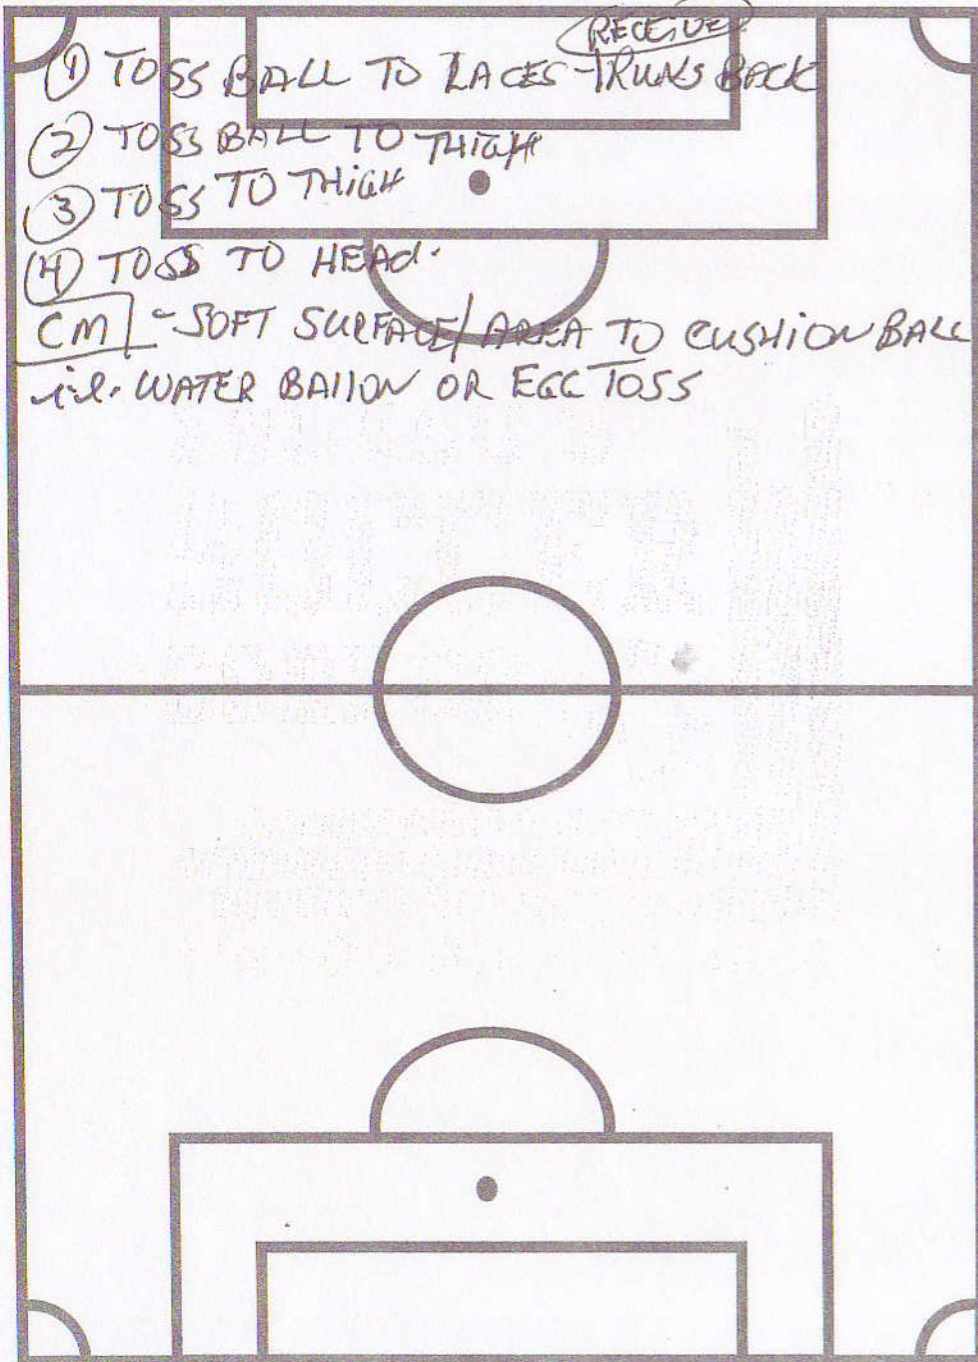 RECEIVE
① TOSS BALL TO LACES - RUNS BACK
② TOSS BALL TO THIGH
③ TOSS TO THIGH
④ TOSS TO HEAD.
CM - SOFT SURFACE/AREA TO CUSHION BALL
i.e. WATER BALLON OR EGG TOSS